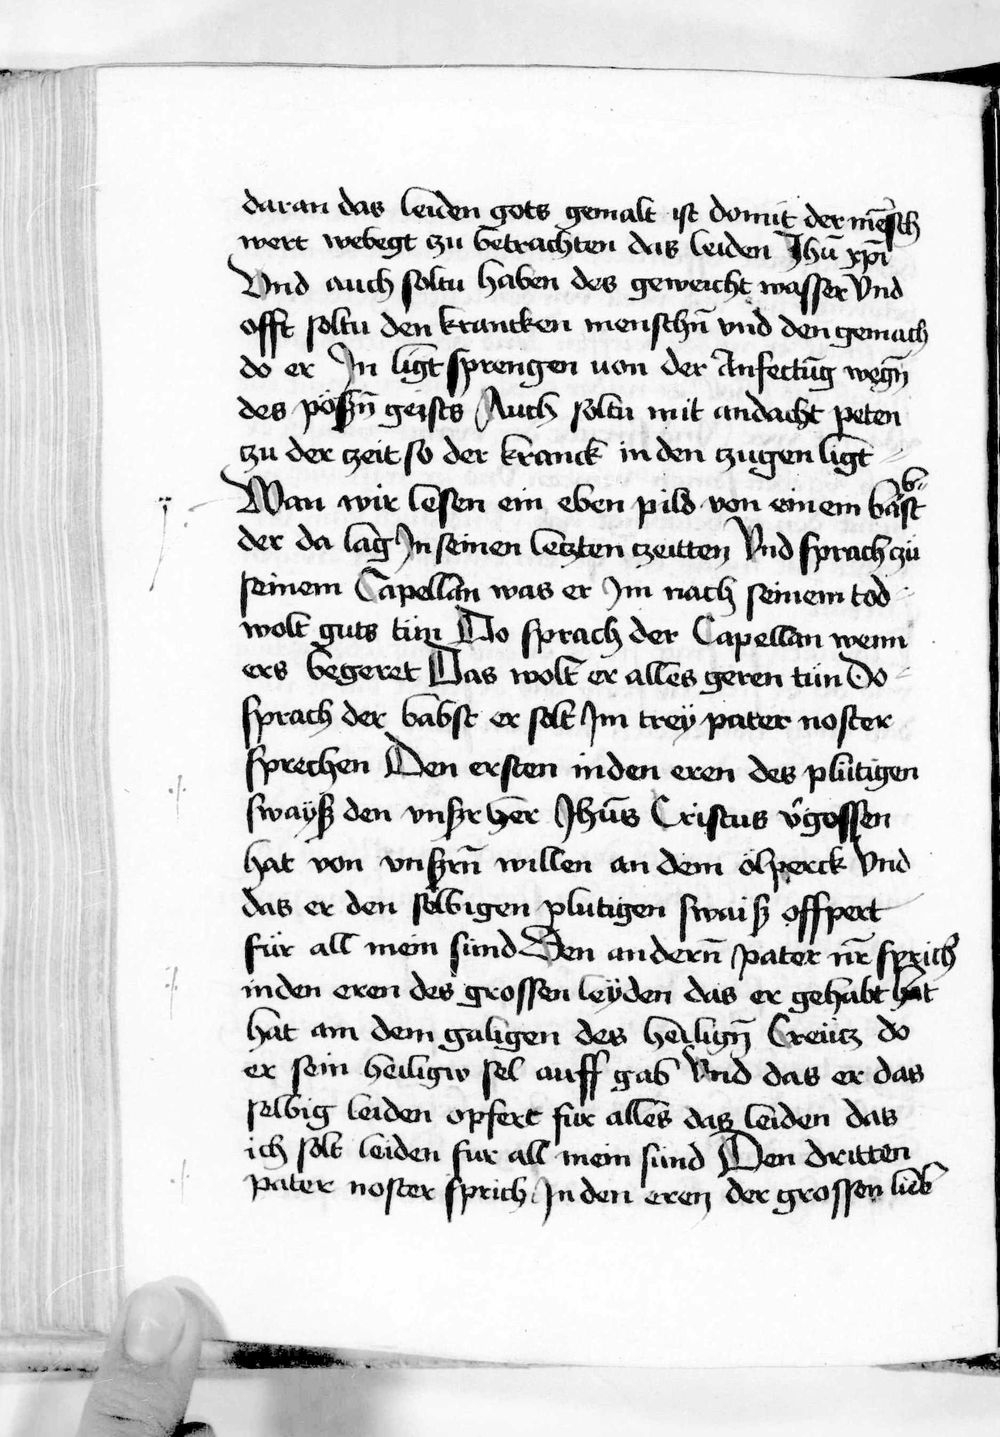 daran das leiden gots gemalt ist domit der mēsch
wert webegt zu betrachten das leiden Jhū xpī
Vnd auch soltu haben des geweicht wasser Vnd
offt soltu den krancken menschn̄ vnd den gemach
do er Jn ligt sprengen von der Anfectūg wegn̄
des pöszn̄ geists Auch soltu mit andacht peten
zu der zeit so der kranck in den zugen ligt
Wan wir lesen ein eben pild von einem babst
der da lag Jn seinen letzten zeitten Vnd sprach zü
seinem Capellan was er Jm nach seinem tod
wolt guts tün Do sprach der Capellan wenn
ers begeret Das wolt er alles geren tün Do
sprach der babst er solt Jm trey pater noster
sprechen Den ersten in den eren des plütigen
swaysz den vnszr her Jhūs Cristus v̄gossen
hat von vnszrn̄ willen an dem ölperck Vnd
das er den selbigen plutigen swaisz offpert
für all mein sünd Den andern̄ pater nr̄ sprich
in den eren des grossen leyden das er gehabt hat
hat am dem galigen des heilign̄ Creütz do
er sein heiligw sel auff gab Vnd das er das
selbig leiden opfert für alles das leiden das
ich solt leiden fur all mein sünd Den dritten
pater noster sprich Jn den eren der grossen